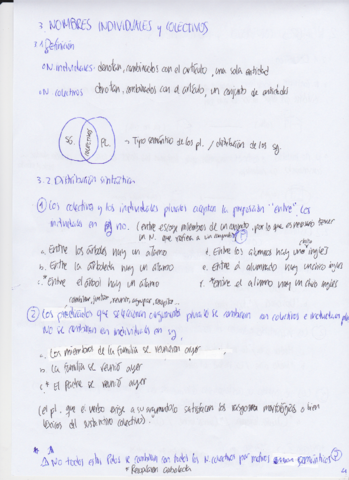 3. NOMBRES INDIVIDUALES y COLECTIVOS
3.1 Definición
N. individuales: denotan, combinados con el artículo, una sola entidad
N. colectivos denotan, combinados con el artículo, un conjunto de entidades
SG. COLECTIVOS PL. → Tipo semántico de los pl. / distribución de los sg.
3.2 Distribución sintáctica
① Los colectivos y los individuales plurales aceptan la preposición "entre". Los
individuales en sg no. (entre escoge miembros de un conjunto por lo que es necesario tener
un N. que refiera a un conjunto) ①
a. Entre los árboles hay un álamo
b. Entre la arboleda hay un álamo
c. * entre el árbol hay un álamo
d. Entre los alumnos hay un chico inglés
e. Entre el alumnado hay un chico inglés
f. *entre el alumno hay un chico inglés
② Los predicados que seleccionan argumentos plurales se combinan con colectivos e individuales plurales
NO se combinan con individuales en sg.
a. Los miembros de la familia se reunieron ayer
b. La familia se reunió ayer
c. * El Padre se reunió ayer
(el pl. que el verbo exige a su argumento satisfacen los rasgos morfológicos o bien
léxicos del sustantivo colectivo).
△ No todos estos Pdos se combinan con todos los N colectivos por motivos semánticos ②
4